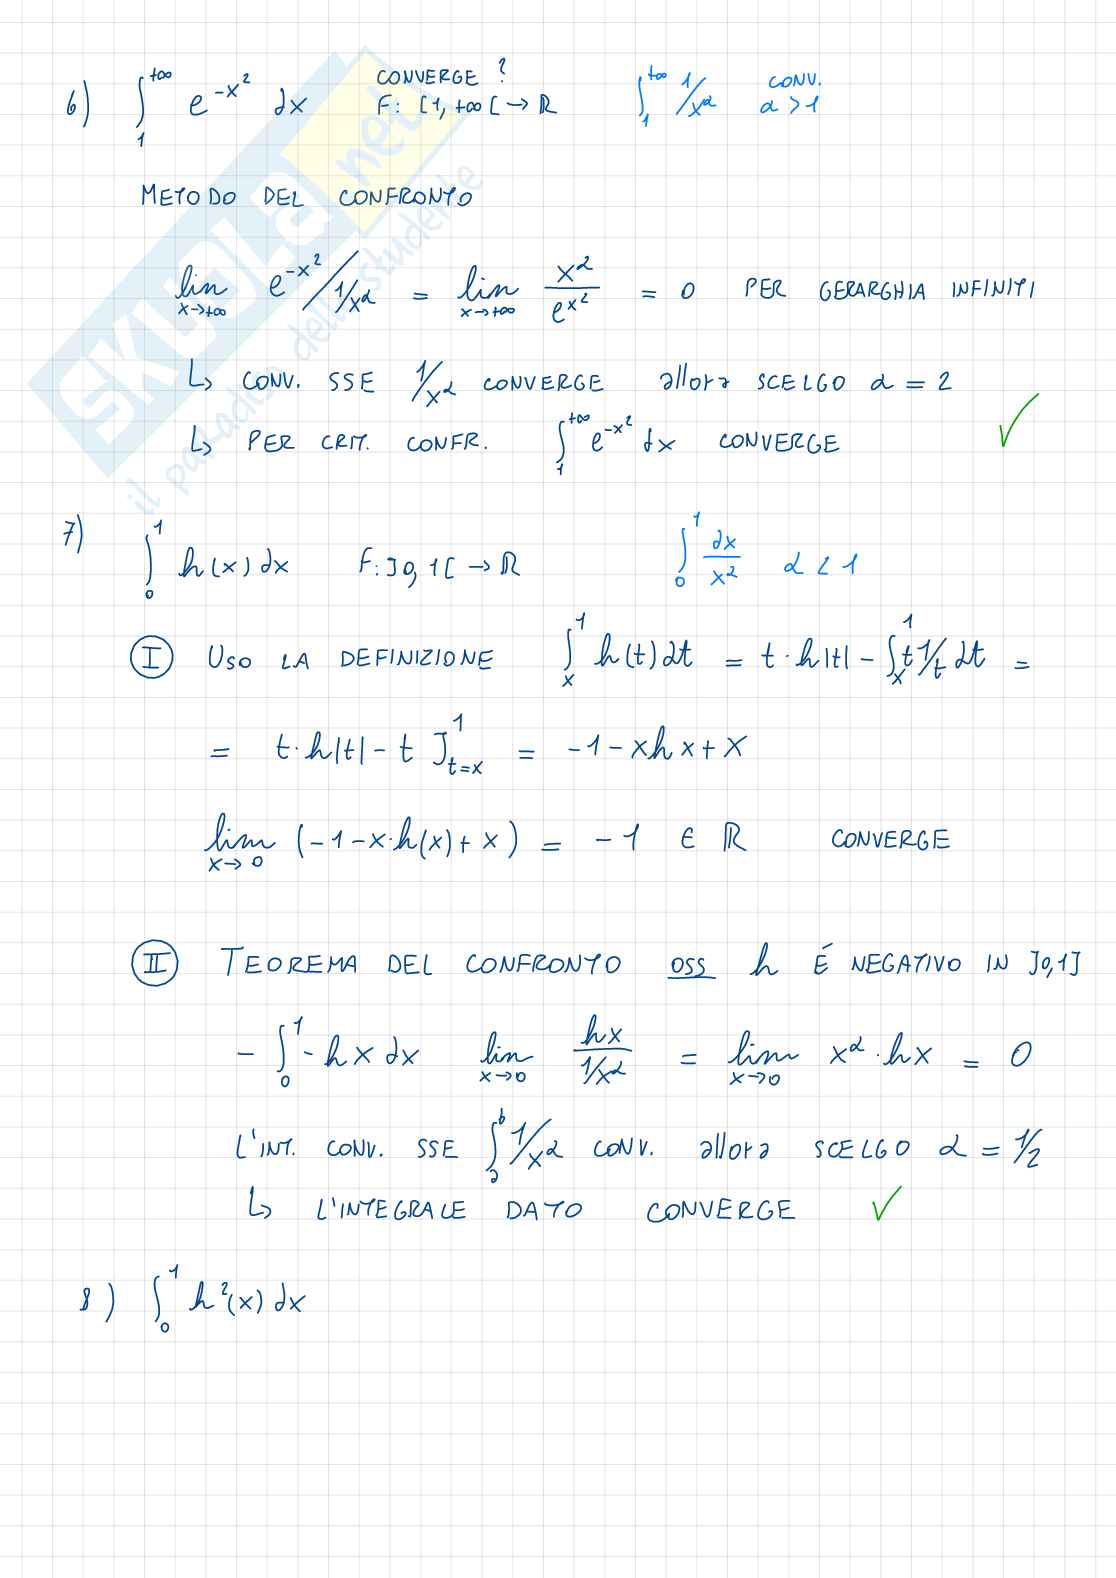 6) ∫₁^{+∞} e^{-x²} dx CONVERGE ? ∫₁^{+∞} 1/x^α CONV.
F: [1, +∞[ → ℝ α > 1
METODO DEL CONFRONTO
lim_{x→+∞} e^{-x²} / 1/x^α = lim_{x→+∞} x^α / e^{x²} = 0 PER GERARGHIA INFINITI
↳ CONV. SSE 1/x^α CONVERGE allora SCELGO α = 2
↳ PER CRIT. CONFR. ∫₁^{+∞} e^{-x²} dx CONVERGE ✓
7) ∫₀¹ h(x) dx F: ]0, 1[ → ℝ ∫₀¹ dx/x^α α < 1
I USO LA DEFINIZIONE ∫ₓ¹ h(t) dt = t · h|t| - ∫ₓ¹ t 1/t dt =
= t · h|t| - t ]_{t=x}^1 = -1 - x h x + x
lim_{x→0} (-1 - x · h(x) + x) = -1 ∈ ℝ CONVERGE
II TEOREMA DEL CONFRONTO OSS h É NEGATIVO IN ]0,1]
- ∫₀¹ - h x dx lim_{x→0} hx / 1/x^α = lim_{x→0} x^α · hx = 0
L'INT. CONV. SSE ∫ₐᵇ 1/x^α CONV. allora SCELGO α = 1/2
↳ L'INTEGRALE DATO CONVERGE ✓
8) ∫₀¹ h²(x) dx
SKUOLA.net
il paradiso dello studente